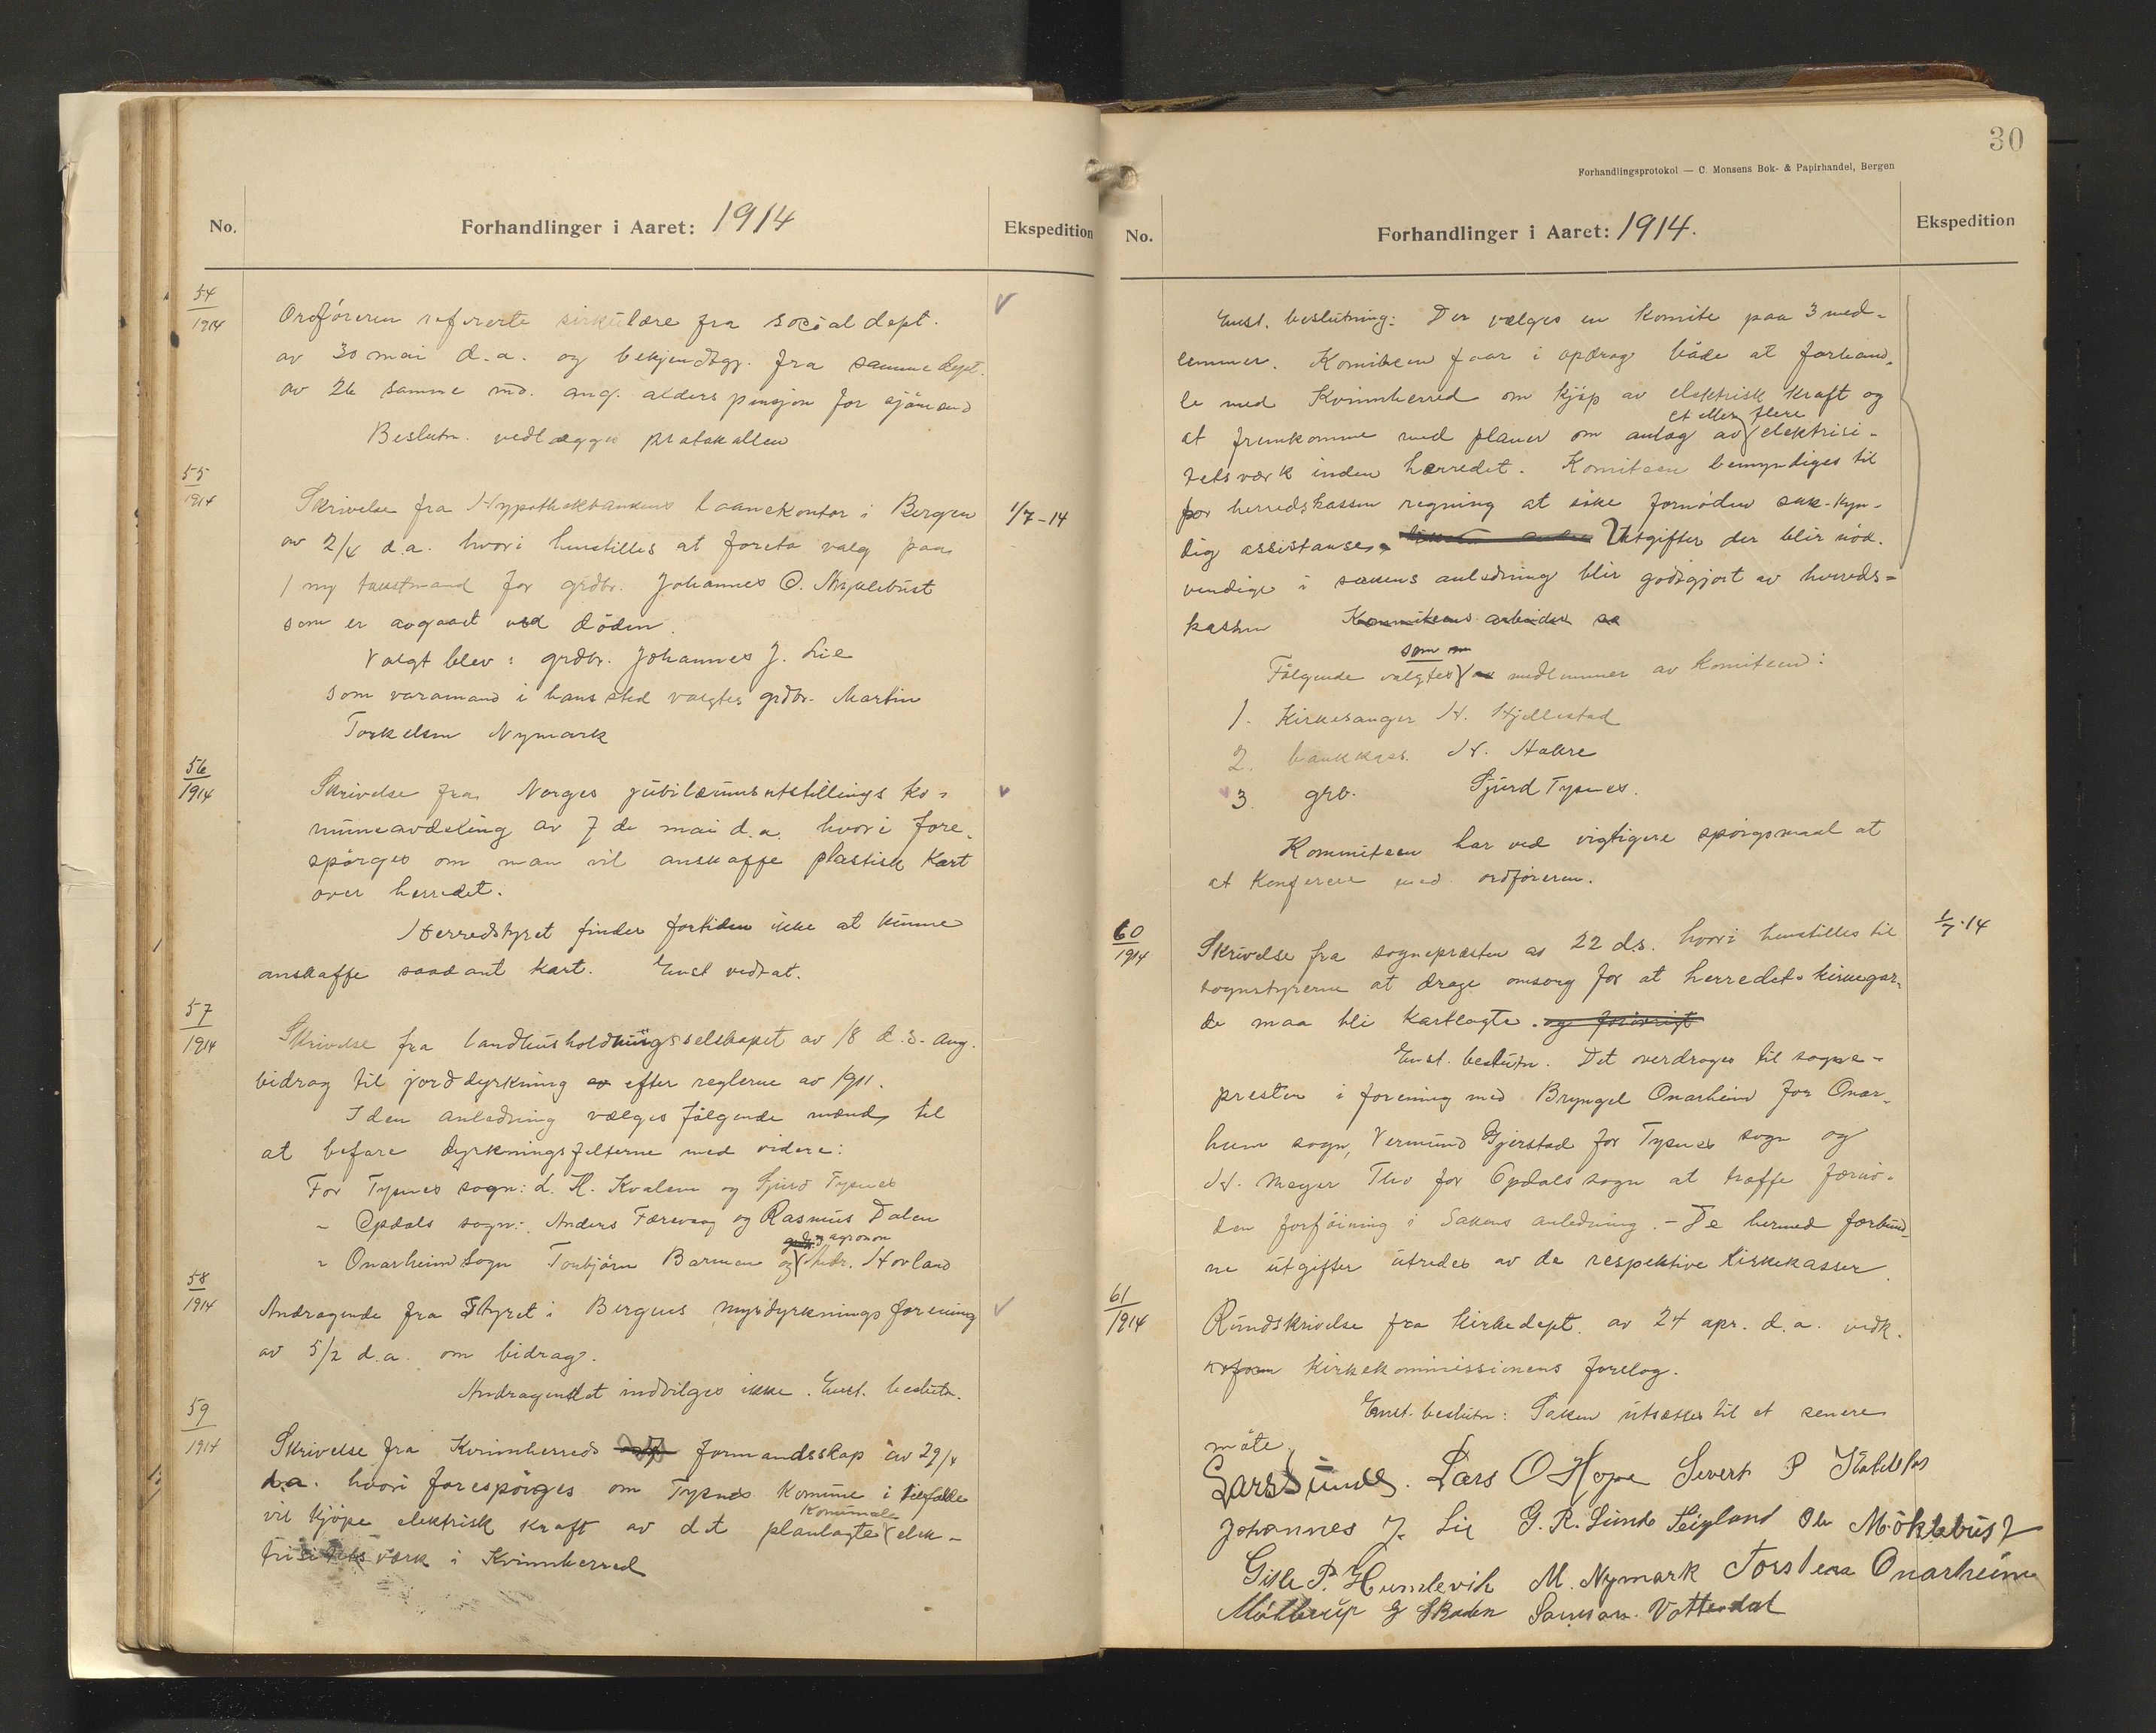 No.
Forhandlinger i Aaret: 1914
Ekspedition
54
1914
Ordføreren refererte sirkulære fra social dept.
av 30 mai d.a. og bekjendtgj. fra samme dept.
av 26 samme md. ang. alders pensjon for sjömend
Beslutn. vedlægges protokollen
55
1914
Skrivelse fra Hypothekbankens laanekontor i Bergen
1/7-14
av 2/4 d.a. hvori henstilles at foreta valg paa
1 ny takstmand for grdbr. Johannes O. Myklebust
som er avgaat ved döden.
Valgt blev: grdbr. Johannes J. Lie
som varamand i hans sted valgtes grdbr. Martin
Torkelsen Nymark
56
1914
Skrivelse fra Norges jubilæumsutstillings ko-
muneavdeling av 7 de mai d.a. hvori fore-
spörges om man vil anskaffe plastisk kart
over herredet.
Herredstyret finder fortiden ikke at kunne
anskaffe saadant kart. Enst vedtat.
57
1914
Skrivelse fra landhusholdningsselskapet av 18 d.s. ang.
bidrag til jorddyrkning av efter reglerne av 1911.
I den anledning vælges fölgende mænd til
at befare dyrkningsfelterne med videre:
For Tysnes sogn: L. H. Kvalem og Sjurd Tysnes
- Opdals sogn: Anders Færevaag og Rasmus Dalen
grdbr. og agronom
- Onarheim sogn Torbjörn Barmen og Andr. Hovland
58
1914
Andragende fra Styret i Bergens myrdyrknings forening
av 5/2 d.a. om bidrag.
Andragendet indvilges ikke. Enst. beslutn.
59
1914
Skrivelse fra Kvinnherreds formandsskap av 29/4
d.a. hvori forespörges om Tysnes komune i tilfælde
komunale
vil kjöpe elektrisk kraft av det planlagte elek-
trisitetsværk i Kvinnherred
30
Forhandlingsprotokol — C. Monsens Bok- & Papirhandel, Bergen
No.
Forhandlinger i Aaret: 1914.
Ekspedition
Enst. beslutning: Der vælges en komite paa 3 med-
lemmer. Komiteen faar i opdrag både at forhand-
le med Kvinnherred om kjöp av elektrisk kraft og
et eller flere
at fremkomme med planer om anlæg av elektrisi-
tetsværk inden herredet. Komiteen bemyndiges til
for herredskassen regning at söke fornöden sak-kyn-
dig assistanse. Utgifter der blir nöd-
vendige i sakens anledning blir godtgjort av herreds-
kassen Kommiteens arbeider sa
som
Fölgende valgtes medlemmer av komiteen:
1. Kirkesanger H. Hjellestad
2. bankkass. N. Hakre
3. grb. Sjurd Tysnes.
Kommiteen har ved vigtigere spörgsmaal at
at konferere med ordföreren.
60
1914
1/7-14
Skrivelse fra sognepræsten av 22 ds. hvori henstilles til
sognstyrerne at drage omsorg for at herredets kirkegar-
de maa bli kartlagte. og forövrigt
Enst. beslutn. Det overdrages til sogne-
presten i forening med Bryngel Onarheim for Onar-
heim sogn, Vermund Gjerstad for Tysnes sogn og
H. Meyer Tho for Opdals sogn at træffe fornö-
den forföining i Sakens anledning. - De hermed forbund-
ne utgifter utredes av de respektive kirkekasser.
61
1914
Rundskrivelse fra kirkedept. av 24 apr. d.a. vedk.
reform kirkekommissionens forslag.
Enst. beslutn: Saken utsættes til et senere
möte.
Lars Sunde. Lars O Hope Sivert P
Johannes J. Lie G. R. Lunde Teigland Ole Möklebust
Gisle P. Humlevik M. Nymark Torstein Onarheim
Möllerup Samson Vattendal